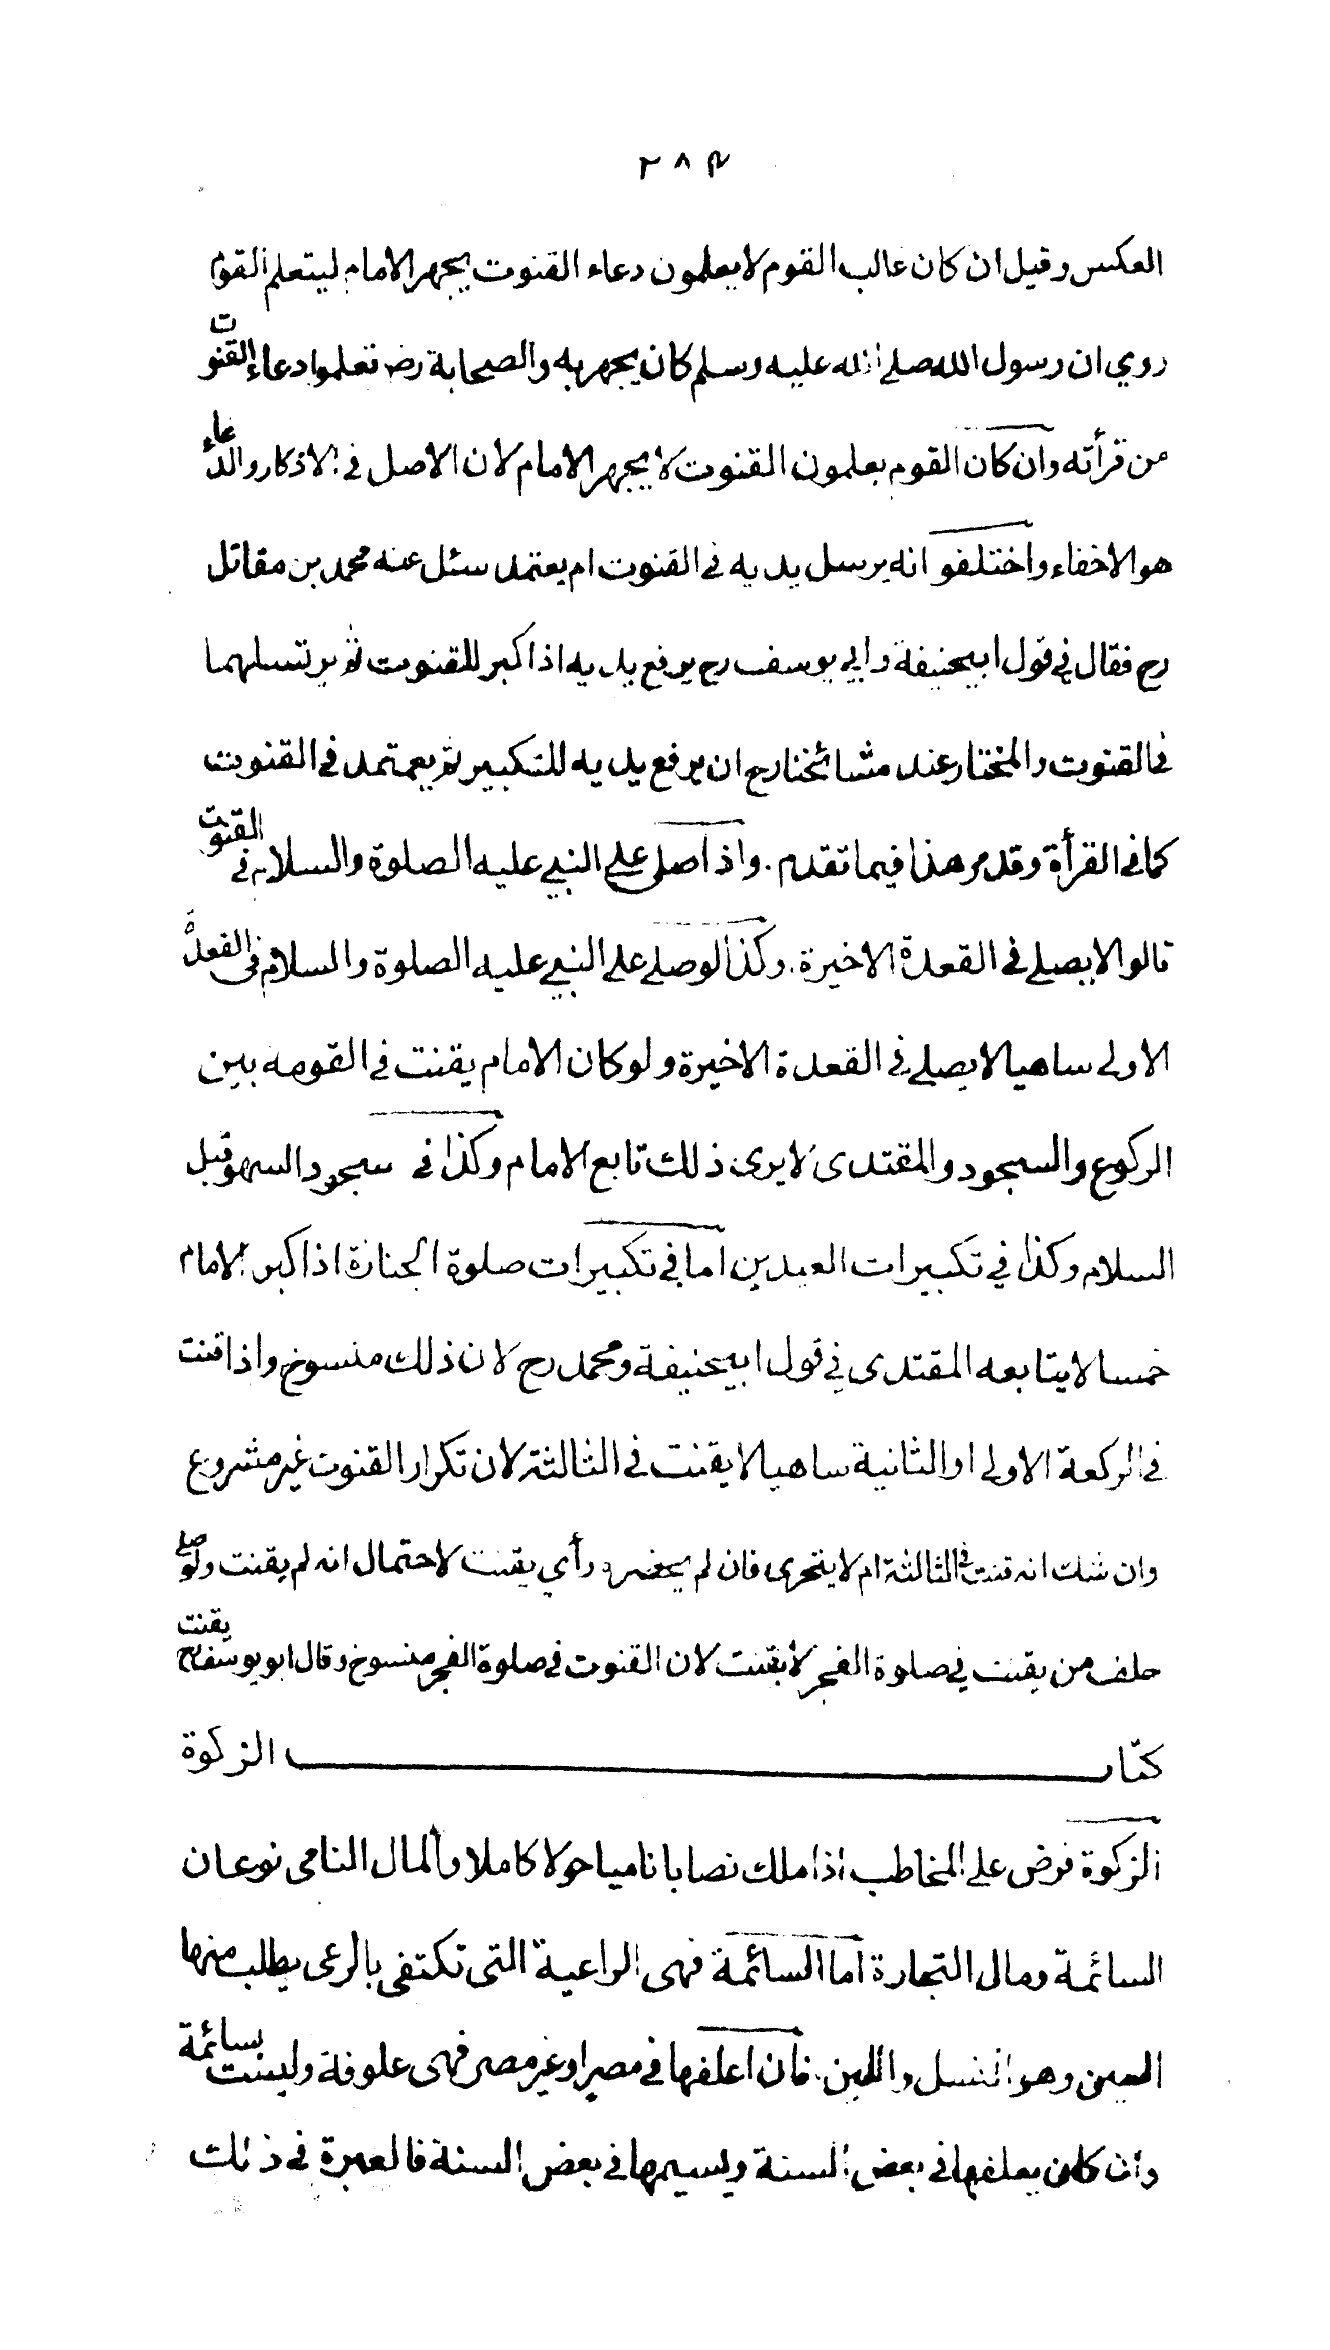 ٢٨٤
العكس وقيل ان كان غالب القوم لا يعلمون دعاء القنوت يجهر الامام ليتعلم القوم
روي ان رسول الله صلى الله عليه وسلم كان يجهر به والصحابة رضـ تعلموا دعاء القنوت
من قرأته وان كان القوم يعلمون القنوت لا يجهر الامام لان الاصل في الاذكار والدعاء
هو الاخفاء واختلفو انه يرسل يديه في القنوت ام يعتمد سئل عنه محمد بن مقاتل
رح فقال في قول ابيحنيفة وابي يوسف رح يرفع يديه اذا كبر للقنوت ثم يرسلهما
في القنوت والمختار عند مشائخنا رح ان يرفع يديه للتكبير ثم يعتمد في القنوت
كما في القرأة وقد مر هذا فيما تقدم . واذا صلى على النبي عليه الصلوة والسلام في القنوت
قالوا لا يصلي في القعدة الاخيرة . وكذا لو صلى على النبي عليه الصلوة والسلام في القعدة
الاولى ساهيا لا يصلي في القعدة الاخيرة ولو كان الامام يقنت في القومه بين
الركوع والسجود والمقتدى لا يرى ذلك تابع الامام وكذا في سجود السهو قبل
السلام وكذا في تكبيرات العيدين اما في تكبيرات صلوة الجنازة اذا كبر الامام
خمسا لا يتابعه المقتدى في قول ابيحنيفة ومحمد رح لان ذلك منسوخ واذا قنت
في الركعة الاولى او الثانية ساهيا لا يقنت في الثالثة لان تكرار القنوت غير مشروع
وان شك انه قنت في الثالثة ام لا يتحرى فان لم يحضره رأي يقنت لاحتمال انه لم يقنت ولو صلى
خلف من يقنت في صلوة الفجر لا يقنت لان القنوت في صلوة الفجر منسوخ وقال ابو يوسف رح يقنت
كتاب الزكوة
الزكوة فرض على المخاطب اذا ملك نصابا ناميا حولا كاملا والمال النامى نوعان
السائمة ومال التجارة اما السائمة فهى الراعية التى تكتفى بالرعى يطلب منها
العين وهو النسل واللبن . فان اعلفها في مصر او غير مصر فهى علوفة وليست بسائمة
وان كان يعلفها في بعض السنة ويسيمها في بعض السنة فالعبرة في ذلك